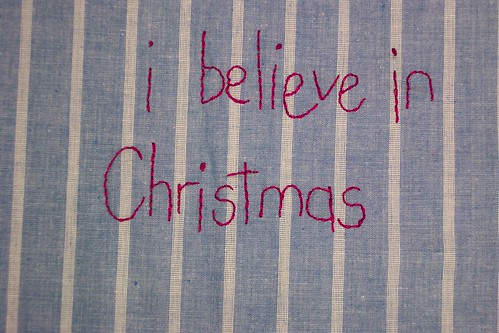 i believe in
Christmas